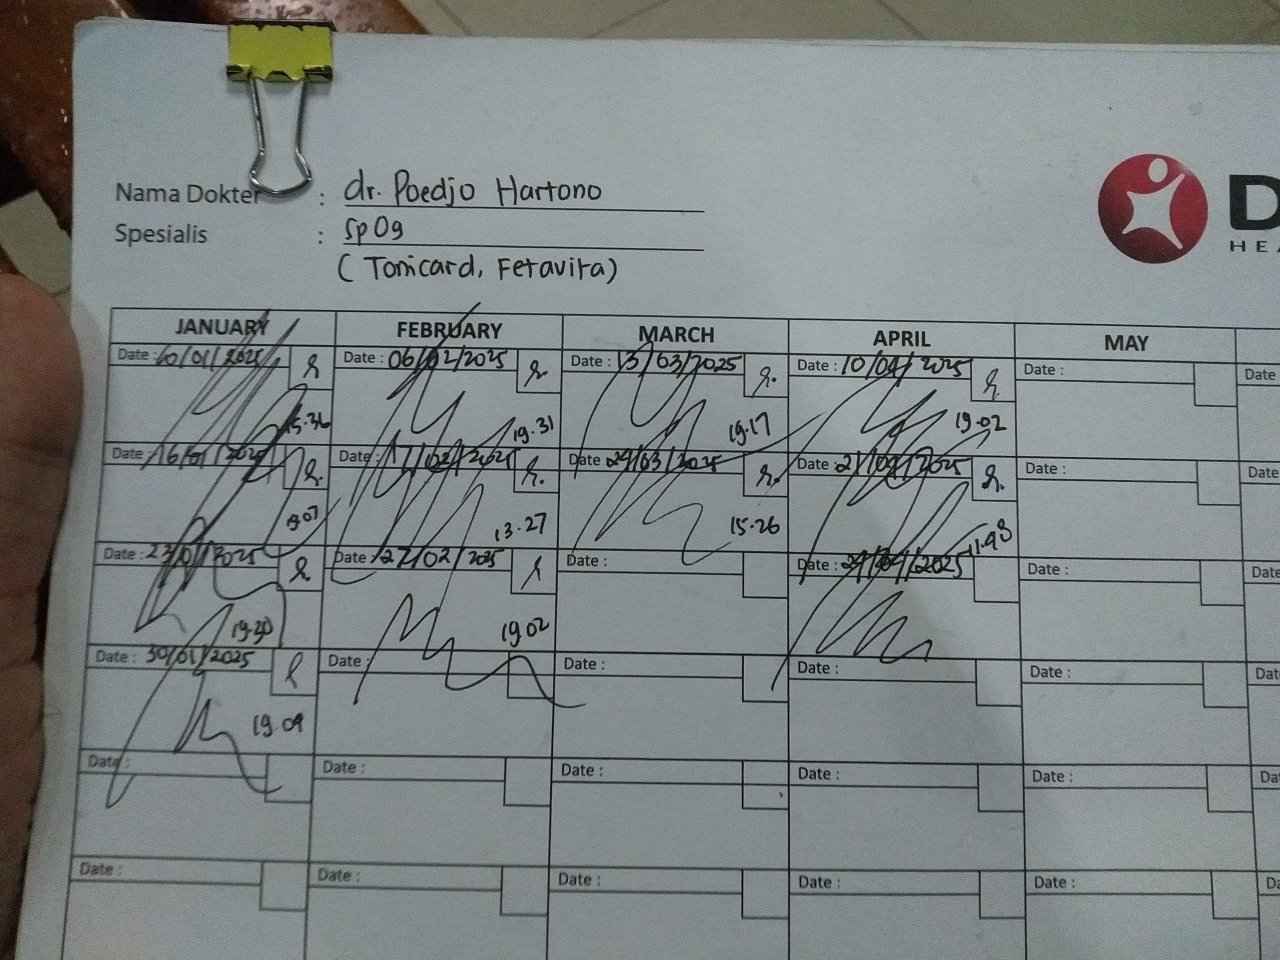 Nama Dokter : dr. Poedjo Hartono
Spesialis : SpOg
(Tonicard, Fetavita)
D
HEA
JANUARY FEBRUARY MARCH APRIL MAY
Date : 10/01/2025 Date : 06/02/2025 Date : 13/03/2025 Date : 10/04/2025 Date : Date
15.36 19.31 19.17 19.02
Date : 16/01/2025 Date : 17/02/2025 Date 29/03/2025 Date : 21/04/2025 Date : Date
19.07 13.27 15.26 11.48
Date : 23/01/2025 Date : 27/02/2025 Date : Date : 29/04/2025 Date : Date
19.20 19.02
Date : 30/01/2025 Date : Date : Date : Date : Dat
19.09
Date : Date : Date : Date : Date : Da
Date : Date : Date : Date : Date :